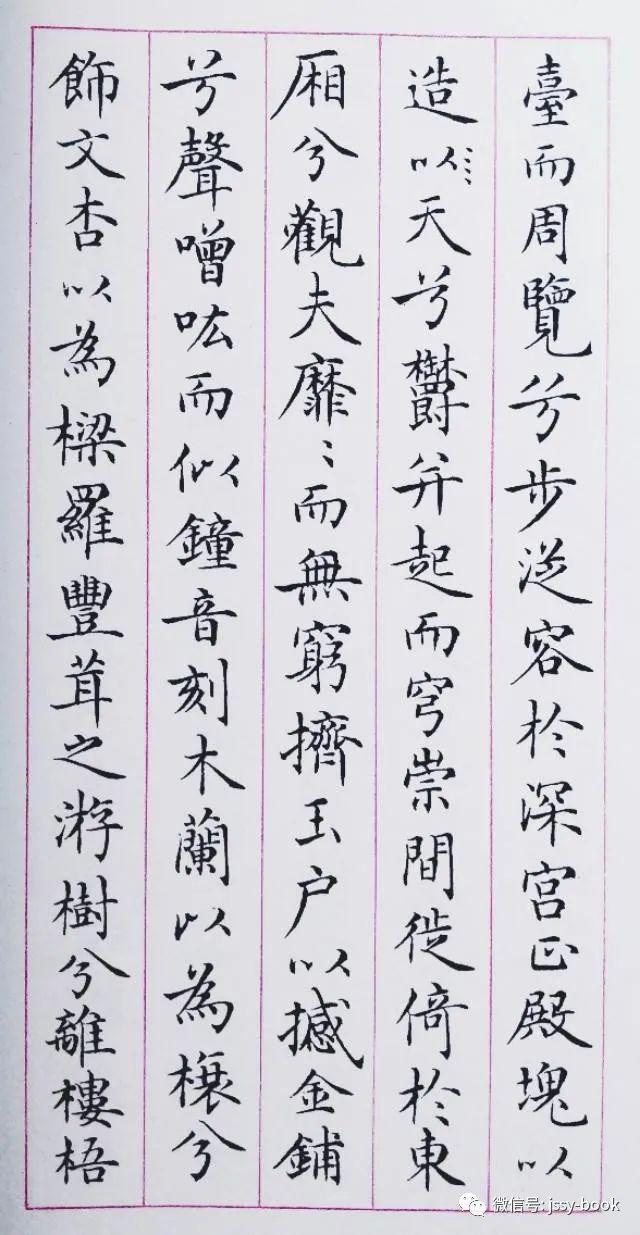 臺而周覽兮步從容於深宮正殿塊以
造以天兮鬱并起而穹崇間徙倚於東
厢兮觀夫靡〻而無窮擠玉户以撼金鋪
兮聲噌吰而似鐘音刻木蘭以為榱兮
飾文杏以為樑羅豐茸之游樹兮離樓梧
微信号: jssy-book